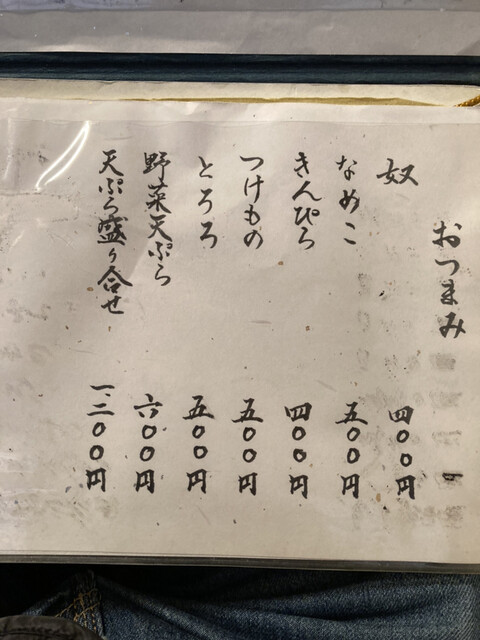 おつまみ
奴 四〇〇円
なめこ 五〇〇円
きんぴら 四〇〇円
つけもの 五〇〇円
とろろ 五〇〇円
野菜天ぷら 六〇〇円
天ぷら盛り合せ 一、二〇〇円